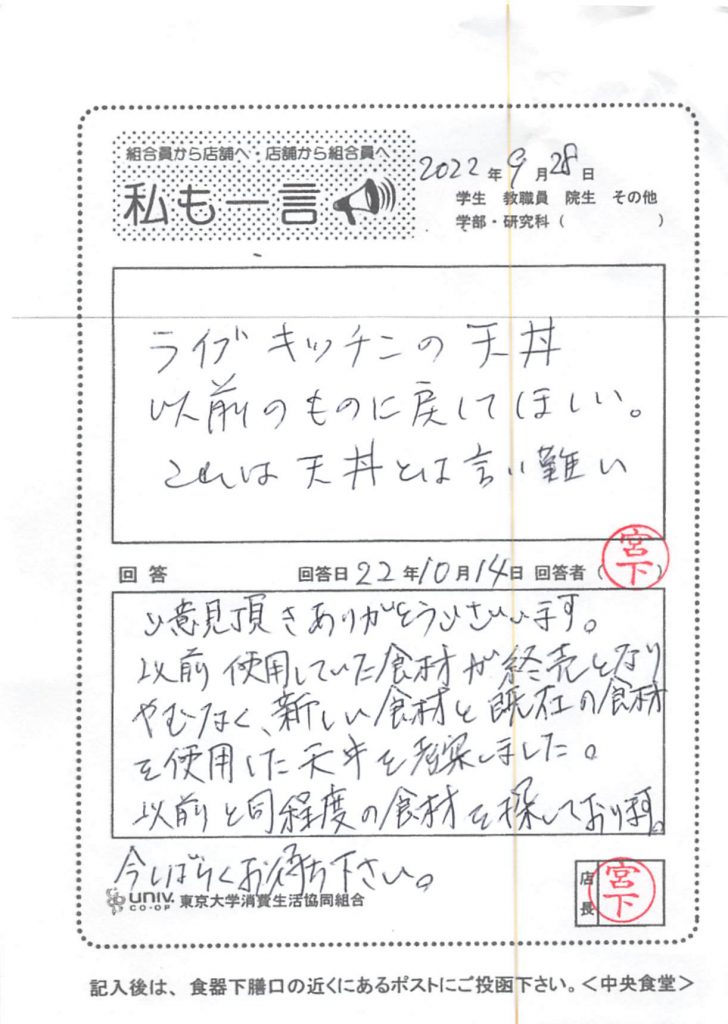 組合員から店舗へ・店舗から組合員へ
私も一言
2022年9月28日
学生 教職員 院生 その他
学部・研究科( )
ライブキッチンの天丼
以前のものに戻してほしい。
これは天丼とは言い難い
回答 回答日22年10月14日 回答者(宮下)
ご意見頂きありがとうございます。
以前使用していた食材が終売となり
やむなく、新しい食材と既在の食材
を使用した天丼を考案しました。
以前と同程度の食材を探しております。
今しばらくお待ち下さい。
店長 宮下
univ. CO-OP 東京大学消費生活協同組合
記入後は、食器下膳口の近くにあるポストにご投函下さい。<中央食堂>